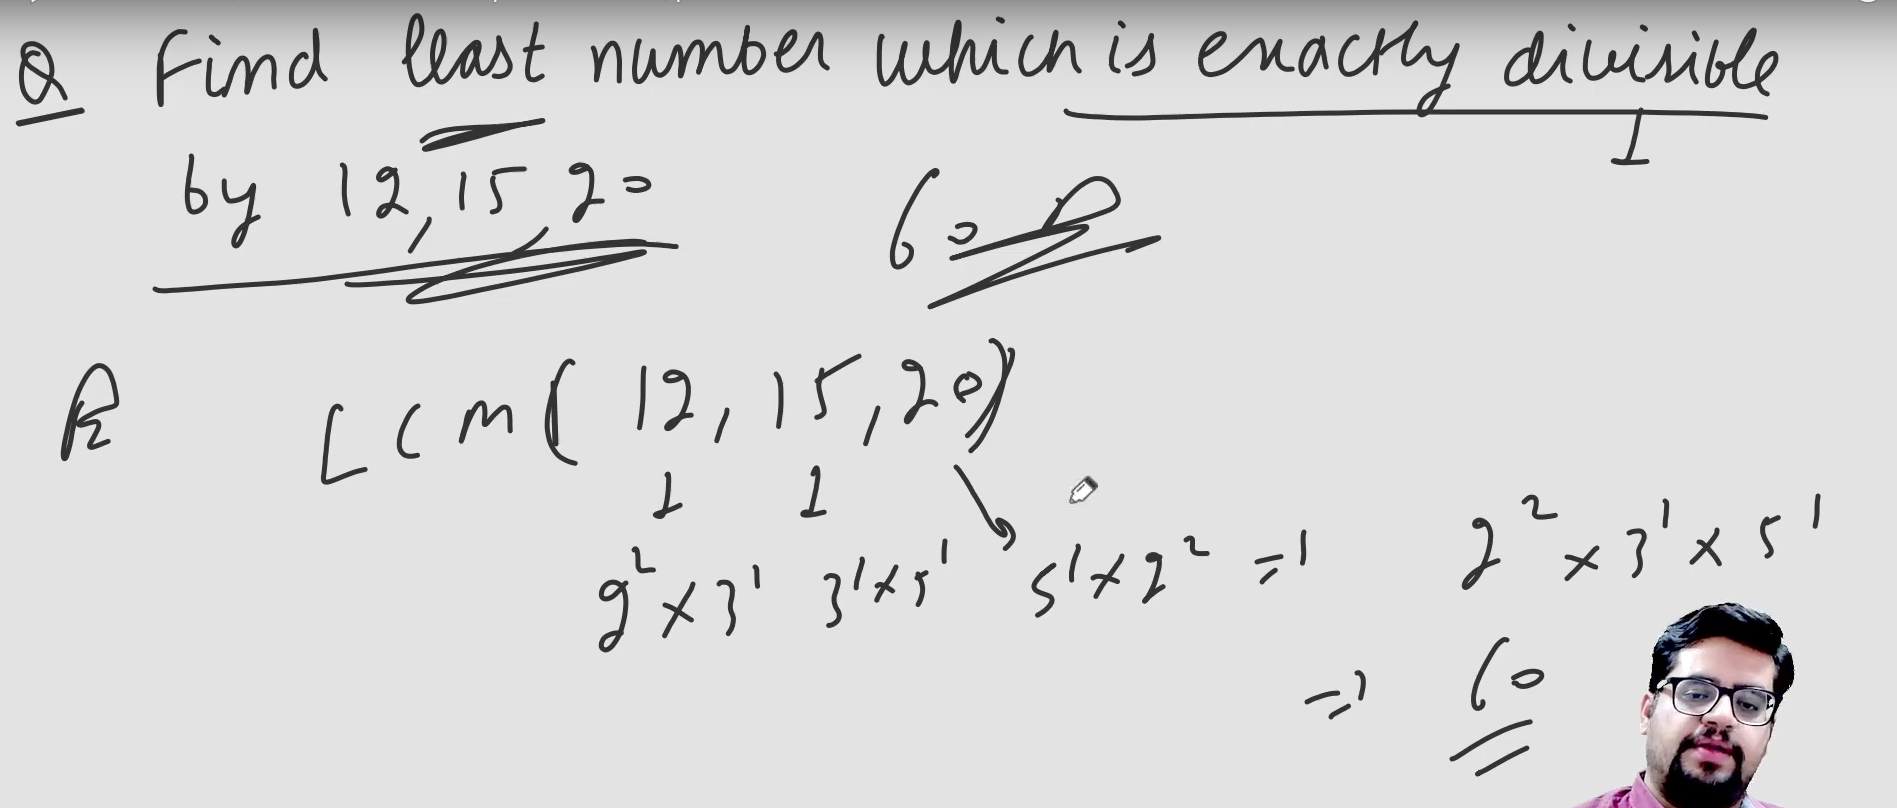 Q Find least number which is exactly divisible
by 12, 15, 20 60
LCM( 12, 15, 20)
2² × 3¹ 3¹ × 5¹ 5¹ × 2² ⇒ 2² × 3¹ × 5¹
⇒ 60